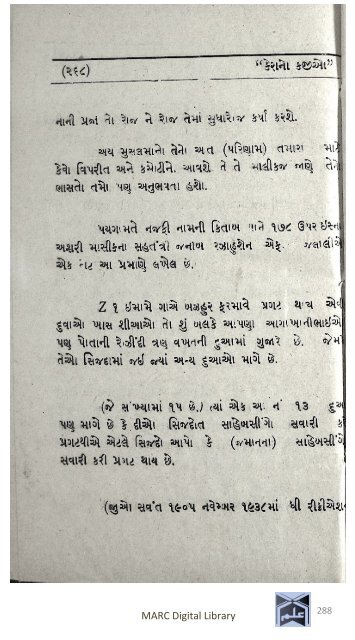 (૨૬૮) "કેરાનો કજીઓ"
નાની પ્રજા તો રોજ ને રોજ તેમાં સુધારોજ કર્યા કરશે.
અય મુસલમાનો તેનો અંત (પરિણામ) તમારા માટે
કેવો વિપરીત અને કમોટીને. આવશે તે તે માલીકજ જાણે તેનો
ભાસતો તમો પણ અનુભવતા હશો.
પયગામતે નજફી નામની કિતાબ પાને ૧૭૮ ઉપર ઈસ્ના
અશરી માસીકના સહતંત્રી જનાબ રઝાહુશેન એફ. જલાલીએ
એક નોટ આ પ્રમાણે લખેલ છે.
Z ૧ ઈમામે ગાએ બઝહુર ફરમાવે પ્રગટ થાય એવી
દુવાઓ ખાસ શીઆઓ તો શું બલકે આપણા આગાખાનીભાઈઓ
પણ પોતાની રોજીંદી ત્રણ વખતની દુઆમાં ગુજારે છે. જેમાં
તેઓ સિજદામાં જઈ જ્યાં અન્ય દુઆઓ માગે છે.
(જે સંખ્યામાં ૧૫ છે.) ત્યાં એક આ નં ૧૩ દુઆ
પણ માગે છે કે દીઓ સિજદોત સાહેબસીંગો સવારી કરી
પ્રગટથીએ એટલે સિજદો આપો કે (જમાનના) સાહેબસીંગો
સવારી કરી પ્રગટ થાય છે.
(જુઓ સવંત ૧૯૦૫ નવેમ્બર ૧૯૩૮માં ધી રીક્રીએશન
MARC Digital Library 288
علم